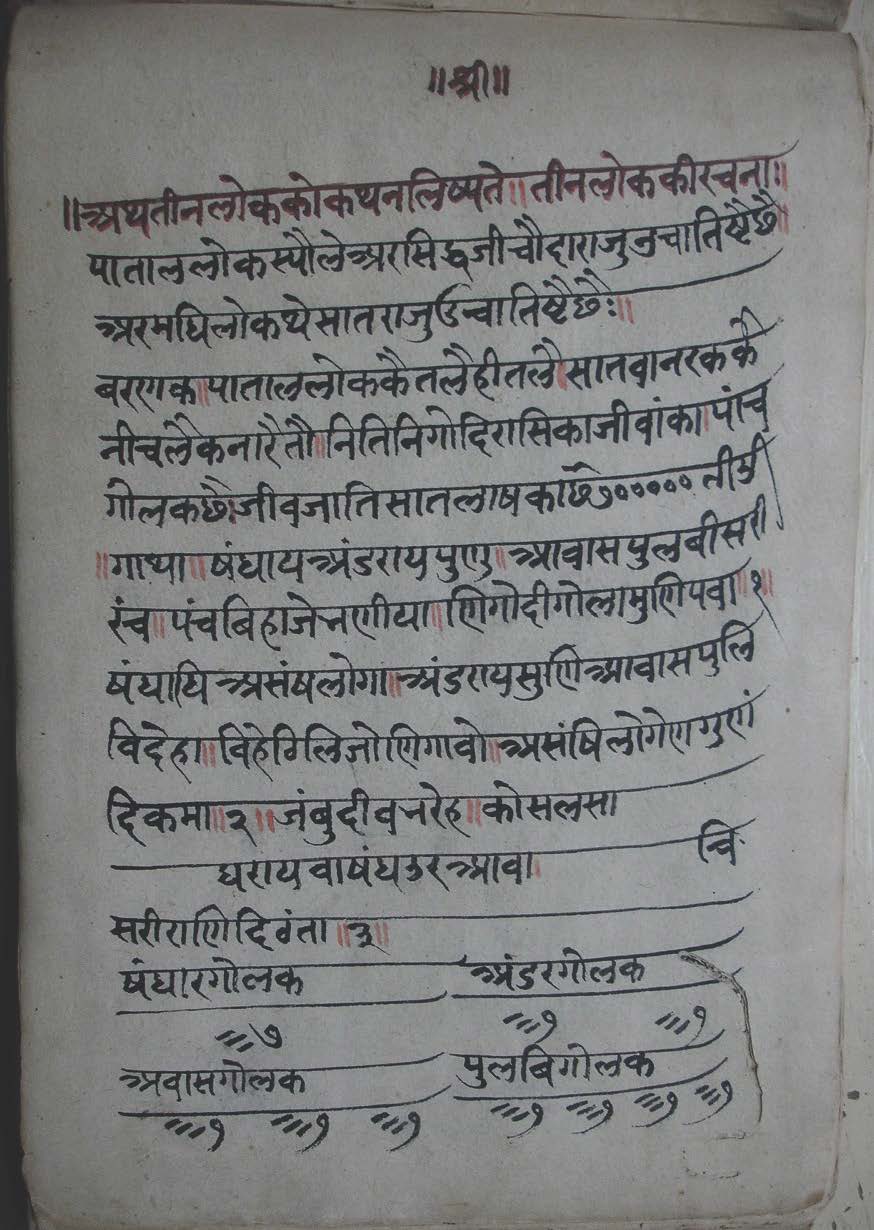 ॥श्री॥
॥अथतीनलोककोकथनलिष्यते॥तीनलोककीरचनाः॥
पाताललोकस्यौलेअरसिद्धजीचौदाराजुउचातिष्टैछै॥
अरमधिलोकथेसातराजुउचातिष्टैछैः॥
बररणका॥पाताललोककैतलैहीतलै॥सातवानरककै
नीचलैकनारैतौ॥नितिनिगोदिरासिकाजीवांका॥पांच
गोलकछै॥जीवजातिसातलाषकाछै७०००००
॥गाथा॥षंधायअंडरायपुण॥आवासपुलबीसरी
रंच॥पंचबिहाजेभणीया॥णिगोदीगोलामुणिपवा॥१॥
षंधायिअसंषलोगा॥अंडरायमुणिआवासपुलि
विदेहा॥विहेठिलिजोणिगावो॥असंषिलोगेणगुणं
दिकमा॥२॥जंबुदीवभरेह॥कोसलसा
घरायवाषंधडरआवा॥ वि
सरीराणिदिठंता॥३॥
षंधारगोलक अंडरगोलक
७ १ १
अवासगोलक पुलबिगोलक
१ १ १ १ १ १ १